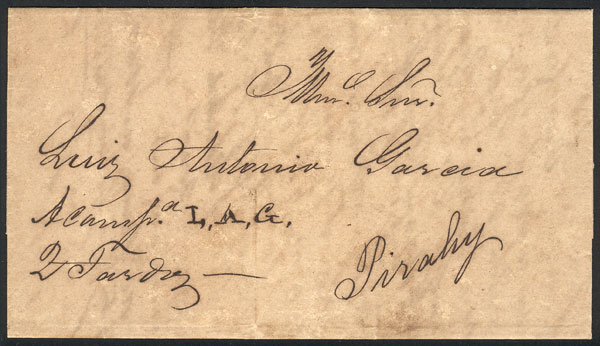 Illmo. Snr.
Luiz Antonio Garcia
Acompa. L.A.G.
2 Fardos —
Pirahy